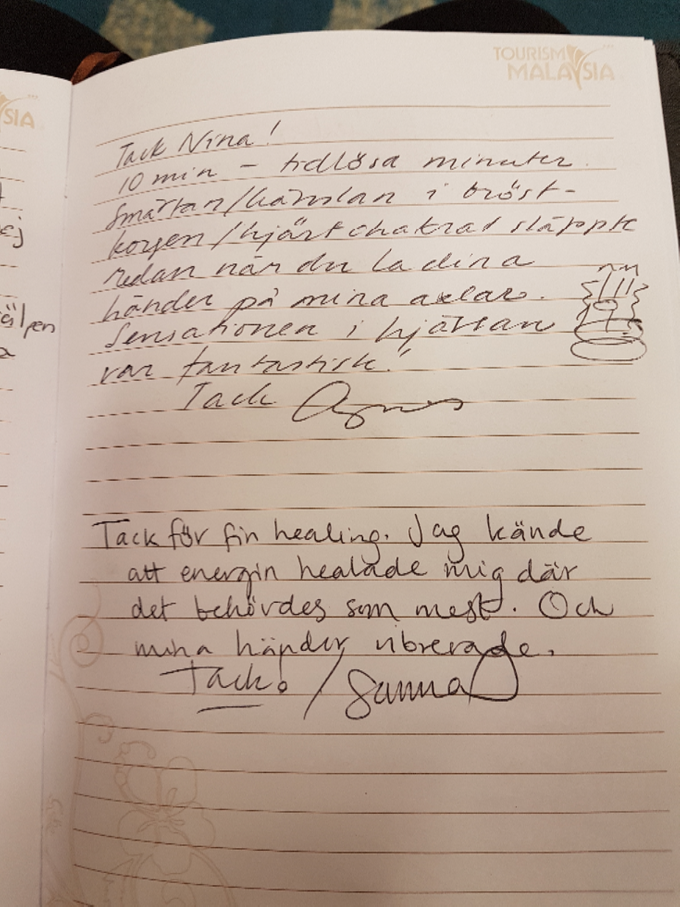 TOURISM
MALAYSIA
SIA
Tack Nina!
10 min – tidlösa minuter.
Smärtan/känslan i bröst-
korgen/hjärtchakrat släppte
redan när du la dina
händer på mina axlar.
Sensationen i hjärtan
var fantastisk!
Tack Agnes
ej
Tack för fin healing. Jag kände
att energin healade mig där
det behövdes som mest. Och
mina händer vibrerade.
Tack! / Sanna